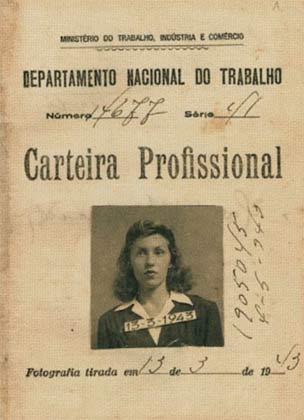 MINISTÉRIO DO TRABALHO, INDÚSTRIA E COMÉRCIO
DEPARTAMENTO NACIONAL DO TRABALHO
Número 14677 Série
Carteira Profissional
13-3-1943
Fotografia tirada em 13 de 3 de 1943